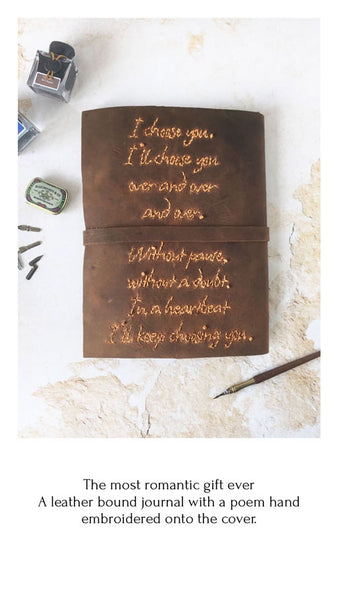 I choose you.
I'll choose you
over and over
and over.
Without pause,
without a doubt.
I'm a heartbeat
I'll keep choosing you.
The most romantic gift ever
A leather bound journal with a poem hand
embroidered onto the cover.